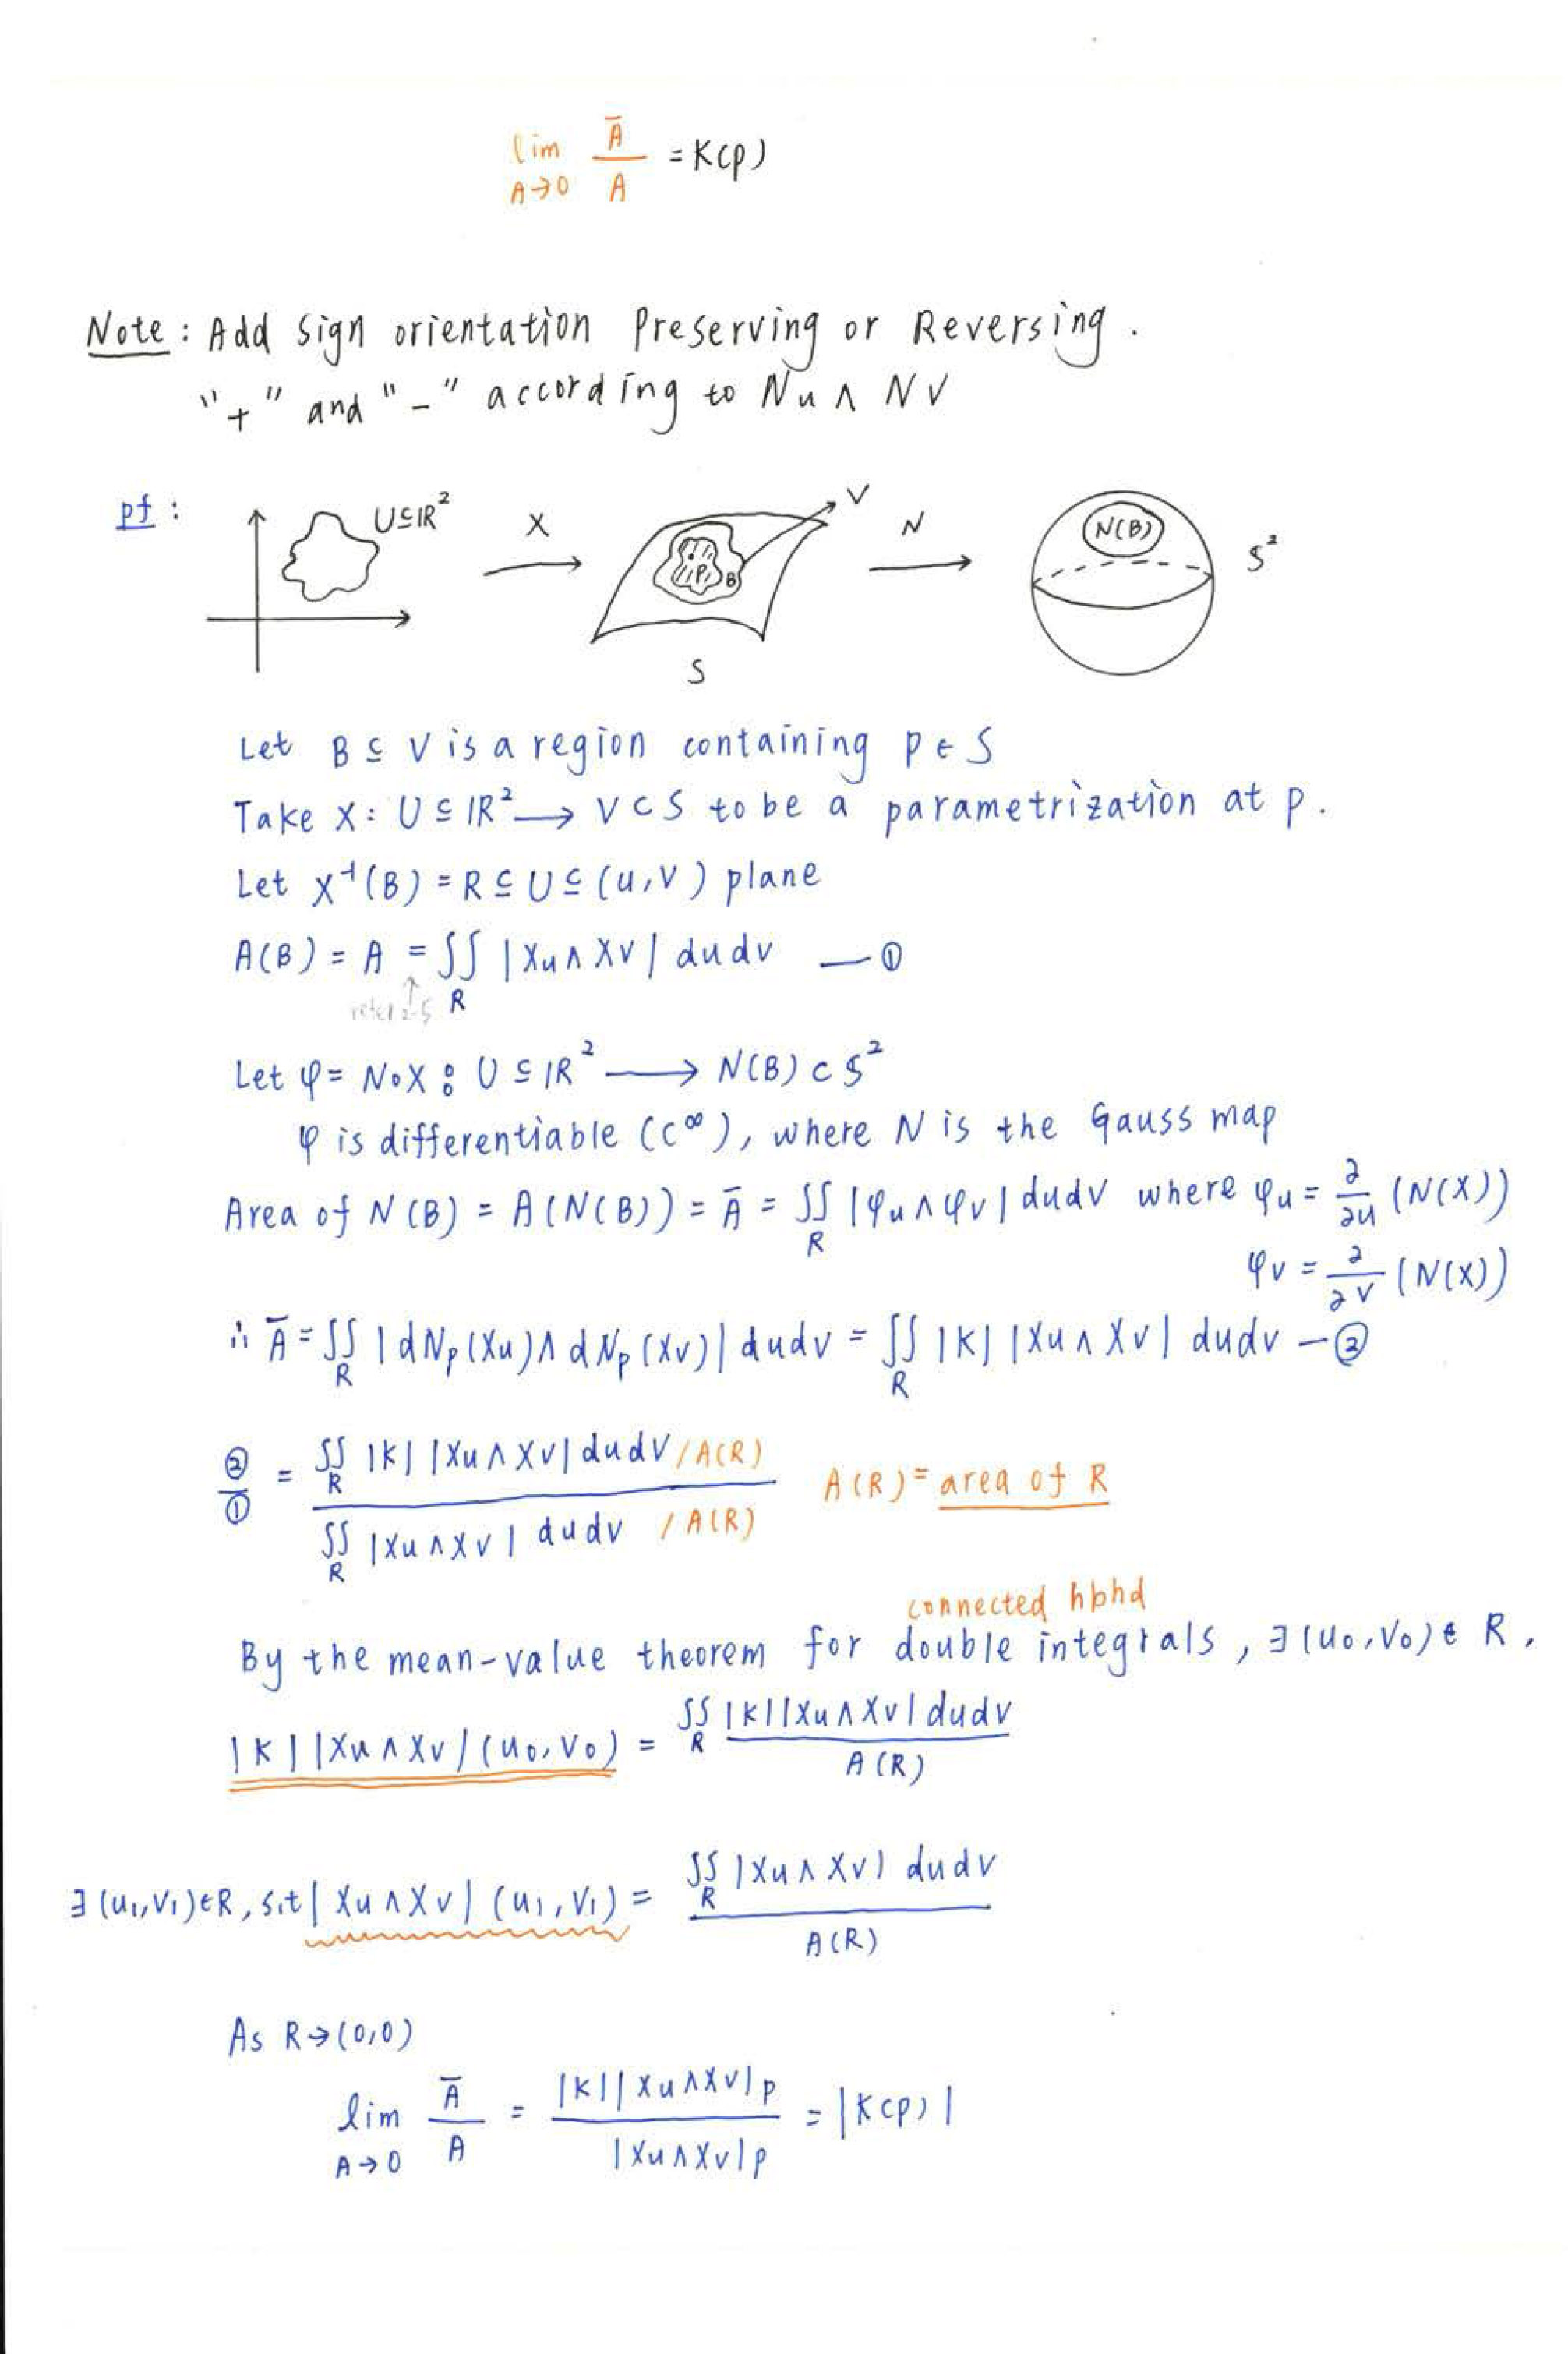 lim A→0 Ā/A = K(p)
Note : Add sign orientation Preserving or Reversing .
"+" and "-" according to Nu ∧ NV
pf :
U⊆ℝ² X V N N(B) S²
P B
S
Let B ⊆ V is a region containing p ∈ S
Take X : U ⊆ ℝ² → V ⊂ S to be a parametrization at p .
Let X⁻¹(B) = R ⊆ U ⊆ (u,v) plane
A(B) = A = ∬_R |Xu ∧ Xv| dudv — ①
↑
2-5
Let φ = N∘X : U ⊆ ℝ² → N(B) ⊂ S²
φ is differentiable (C^∞), where N is the Gauss map
Area of N(B) = A(N(B)) = Ā = ∬_R |φu ∧ φv| dudv where φu = ∂/∂u (N(X))
φv = ∂/∂v (N(X))
∴ Ā = ∬_R |dNp(Xu) ∧ dNp(Xv)| dudv = ∬_R |K| |Xu ∧ Xv| dudv — ②
②/① = ∬_R |K| |Xu ∧ Xv| dudv /A(R) / ∬_R |Xu ∧ Xv| dudv /A(R) A(R) = area of R
connected nbhd
By the mean-value theorem for double integrals , ∃ (u₀,v₀) ∈ R ,
|K| |Xu ∧ Xv| (u₀,v₀) = ∬_R |K||Xu ∧ Xv| dudv / A(R)
∃ (u₁,v₁)∈R , s.t | Xu ∧ Xv | (u₁,v₁) = ∬_R |Xu ∧ Xv| dudv / A(R)
As R→(0,0)
lim A→0 Ā/A = |K||Xu∧Xv|p / |Xu∧Xv|p = |K(p)|